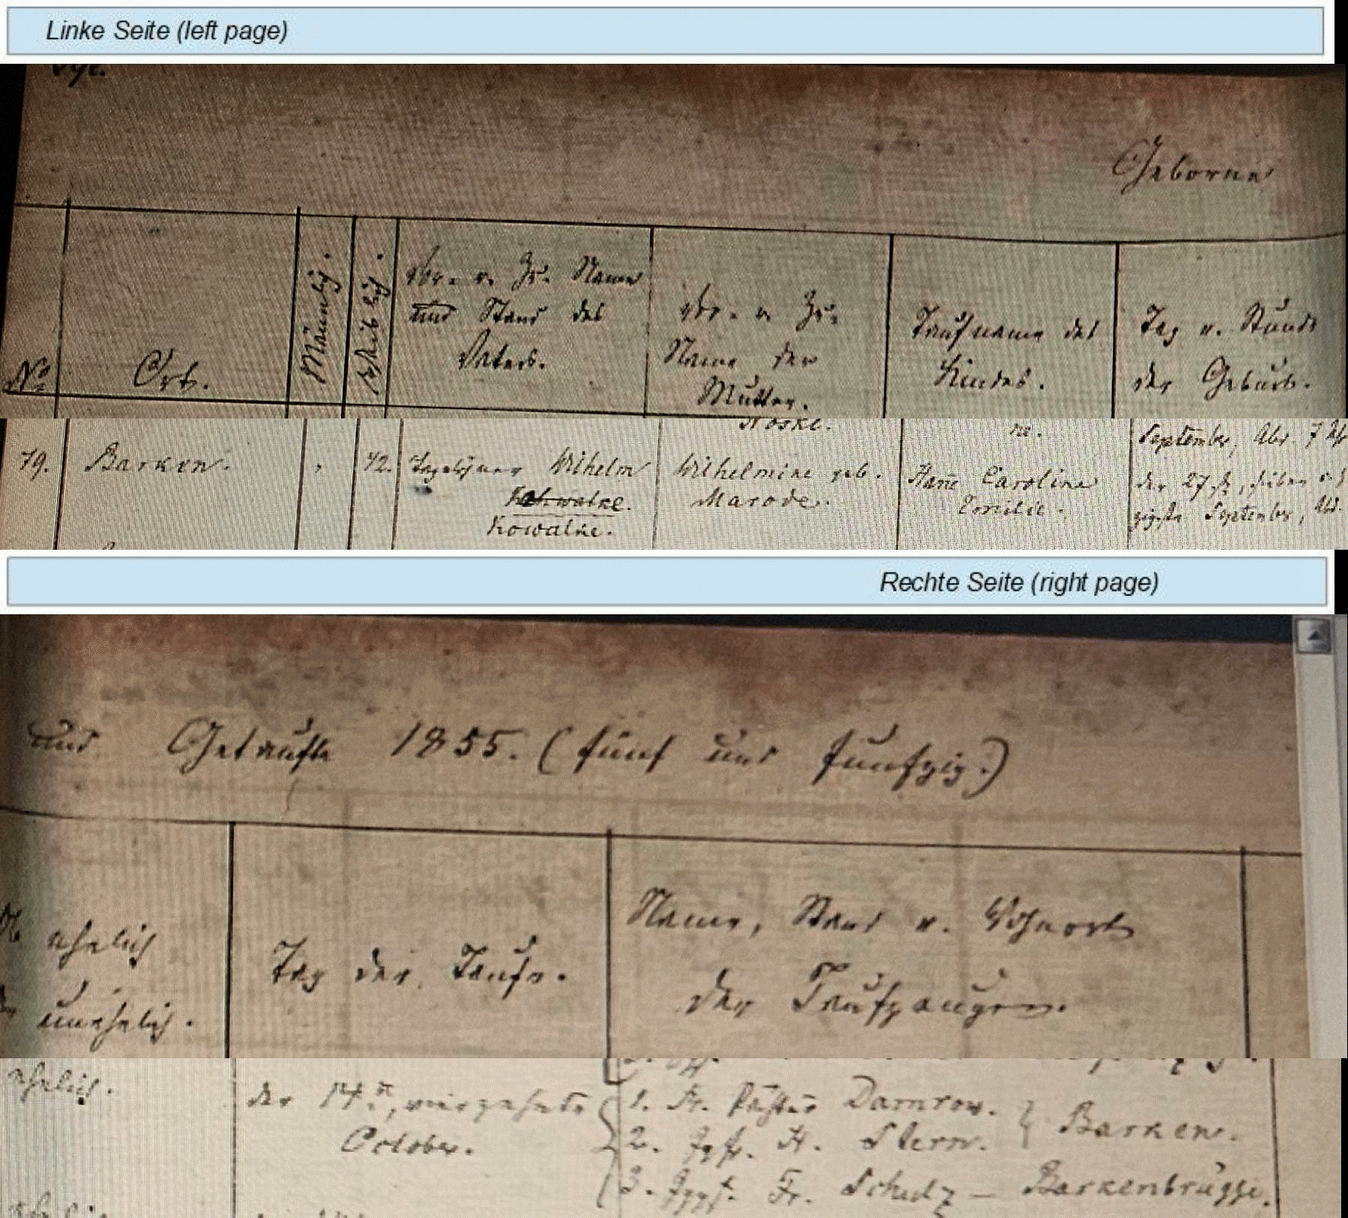 Linke Seite (left page)
Geborne
No
Ort.
Männlich.
Weiblich.
Vor- u. Zu- Name
und Stand des
Vaters.
Vor- u. Zu-
Name der
Mutter.
Taufname des
Kindes.
Tag u. Stunde
der Geburt.
Noske.
ne.
September, Abds. 7 Uhr
79.
Barken.
42.
Tagelöhner Wilhelm
Kowalke.
Wilhelmine geb.
Marode.
Hanne Caroline
Emilie.
den 27st., sieben u. z
zigsten September, Abd.
Rechte Seite (right page)
und Getaufte 1855. (fünf und funfzig.)
Ob ehelich
oder unehelich.
Tag der Taufe.
Name, Stand u. Wohnort
der Taufzeugen.
ehelich.
den 14.n, vierzehnte
October.
1. Fr. Damrow.
2. Jgfr. H. Stern.
Barken.
3. Fr. Schulz – Barkenbrügge.